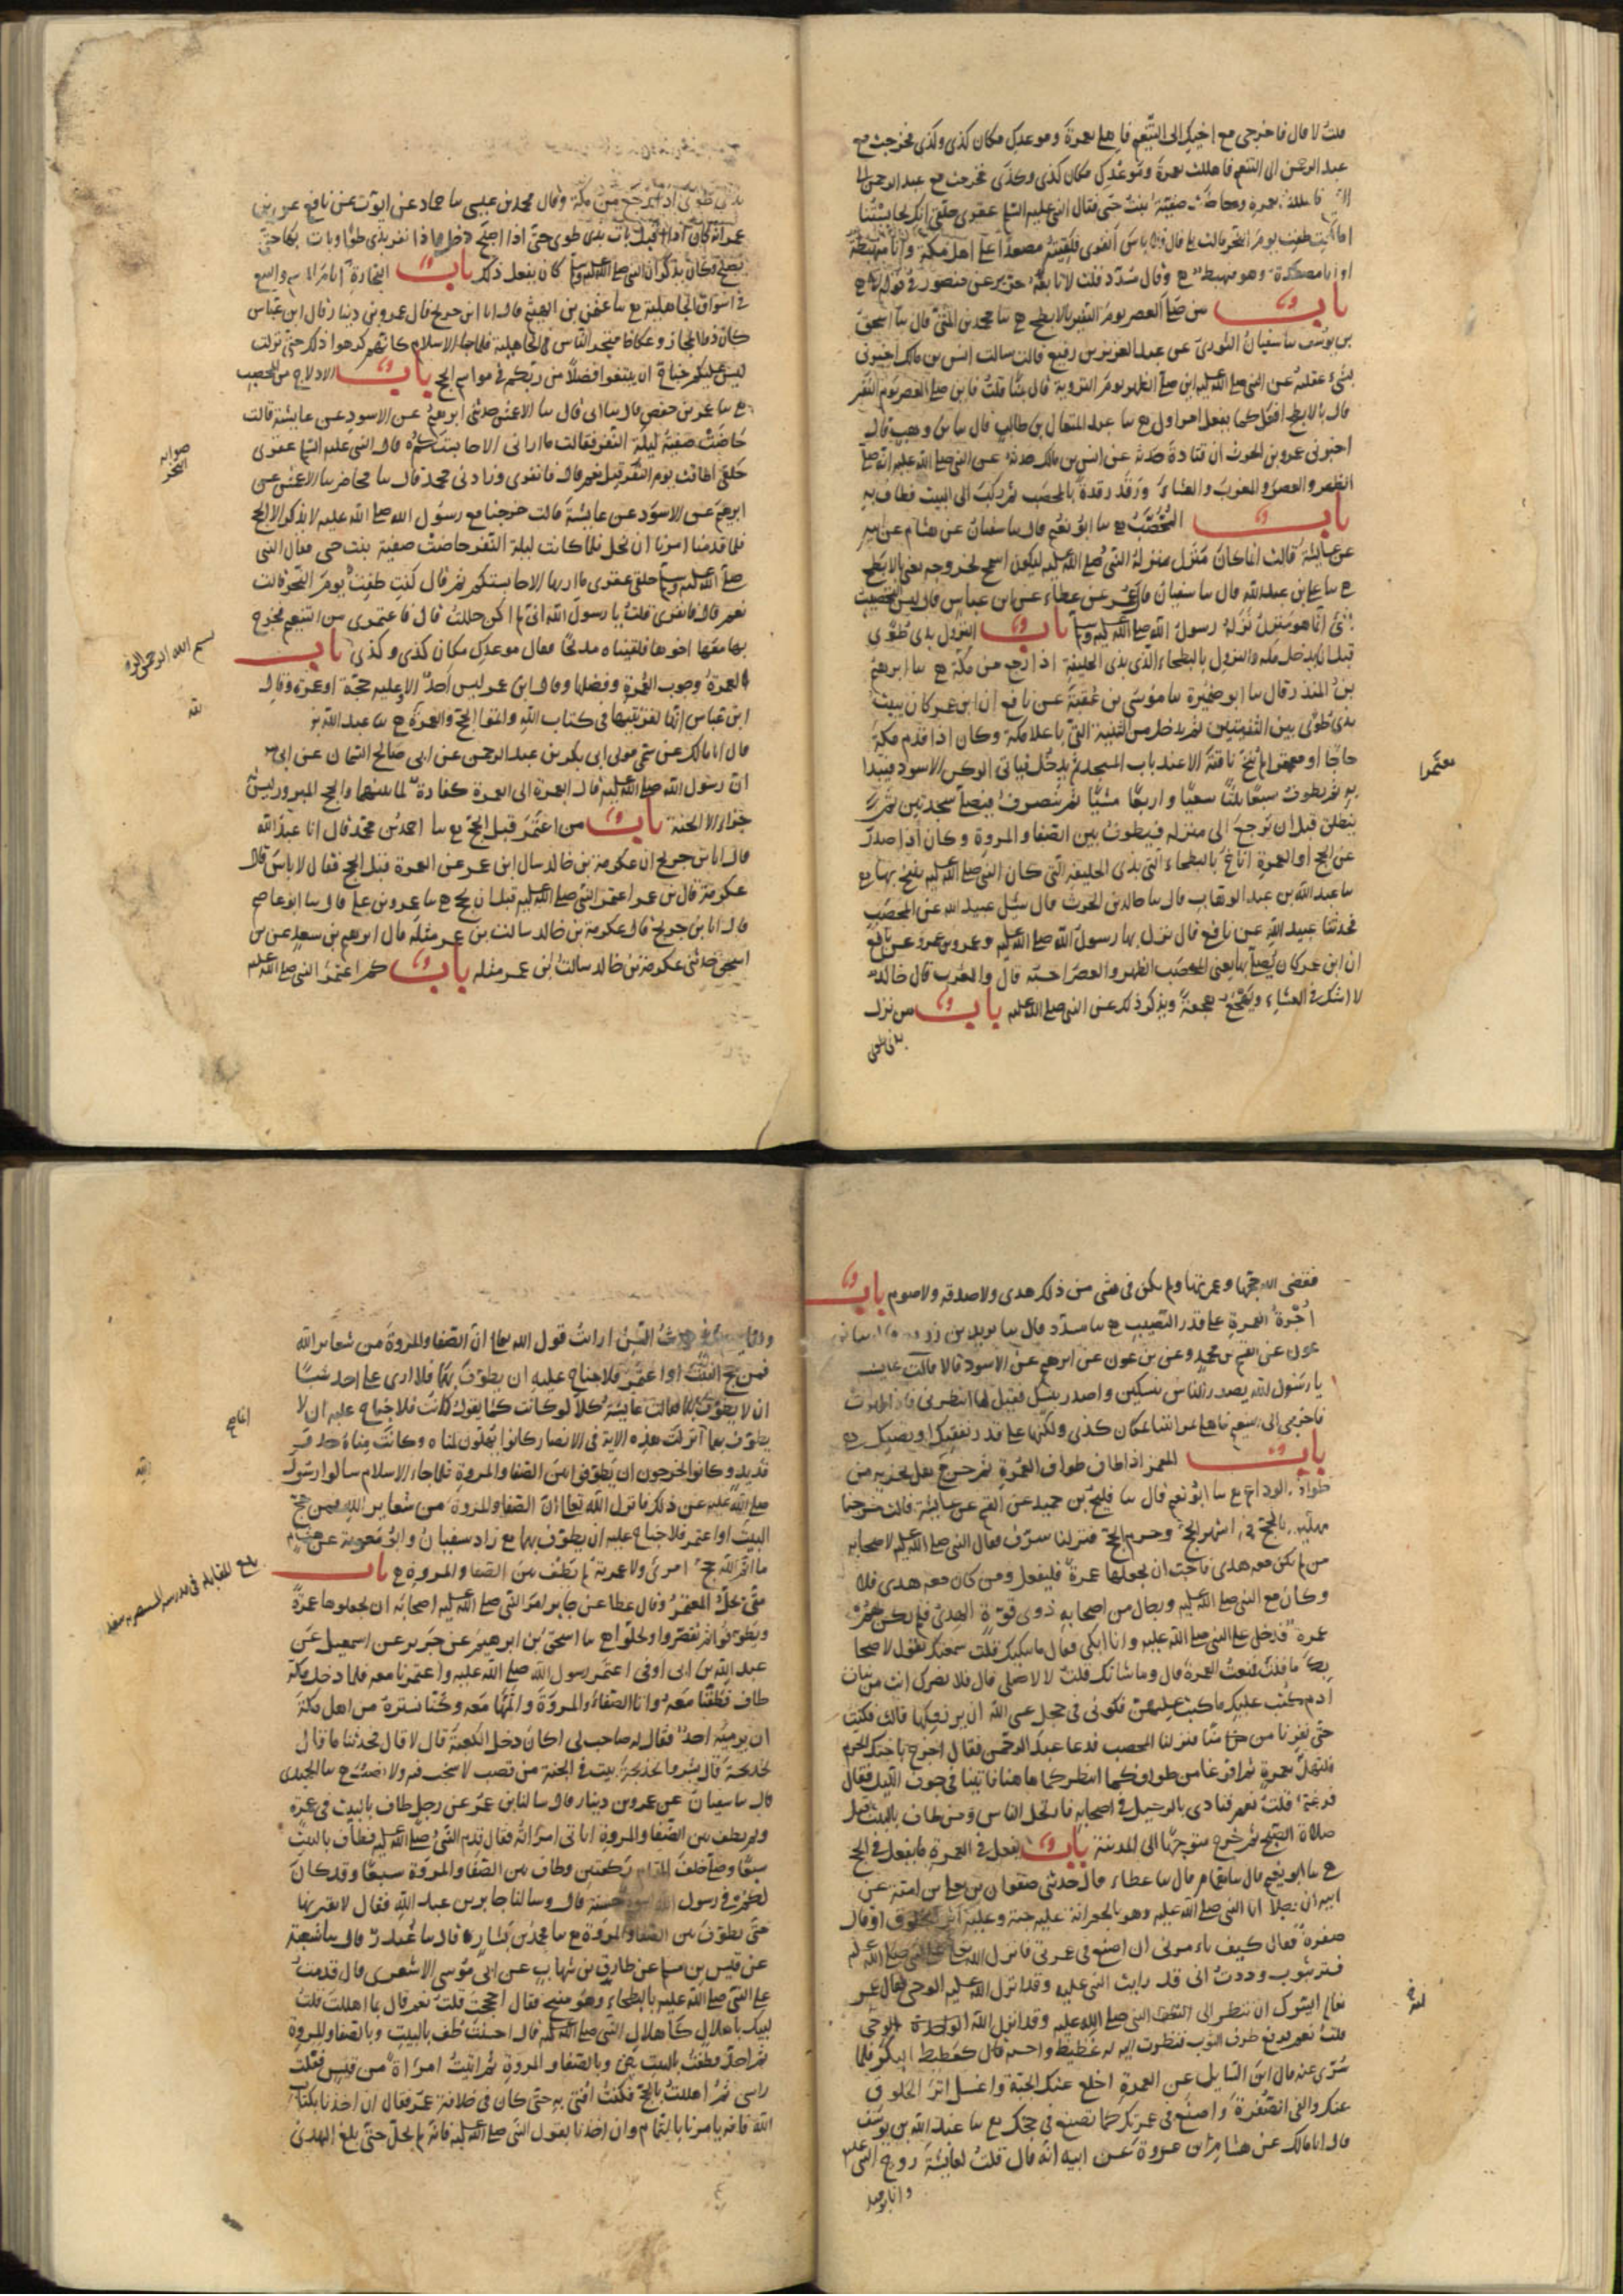 قلت لا قال فاخرجي مع اخيك الى التنعيم فاهلي بعمرة وموعدك مكان كذى وكذى فخرجت مع
عبد الرحمن الى التنعيم فاهللت بعمرة وموعدك مكان كذى وكذى فخرجت مع عبد الرحمن الى
فاهللت بعمرة وحاضت صفية بنت حيي فقال النبي عليه السلم عقرى حلقى انك لحابستنا
اما كنت طفت يوم النحر قالت بلى قال فلا باس انفري فلقيته مصعدا على اهل مكة وانا منهبطة
او انا مصعدة وهو منهبط ح وقال مسدد قلت لا تابعه جرير عن منصور في قوله لا ح
باب من صلى العصر يوم النفر بالابطح ح سا محمد بن المثنى قال سا اسحق
بن يوسف سا سفيان الثوري عن عبد العزيز بن رفيع قال سالت انس بن مالك اخبرني
بشيء عقلته عن النبي صلى الله عليه اين صلى الظهر يوم التروية قال بمنا قلت فاين صلى العصر يوم النفر
قال بالابطح افعل كما يفعل امراوك ح سا عبد المتعال بن طالب قال سا بن وهب قال
اخبرني عمرو بن الحرث ان قتادة حدثه عن انس بن مالك حدثه عن النبي صلى الله عليه انه صلى
الظهر والعصر والمغرب والعشاء ورقد رقدة بالمحصب ثم ركب الى البيت فطاف به
باب المحصب ح سا ابو نعيم قال سا سفيان عن هشام عن ابيه
عن عايشة قالت انما كان منزل منزله النبي صلى الله عليه ليكون اسمح لخروجه يعني بالابطح
ح سا علي بن عبد الله قال سا سفيان قال عمرو عن عطاء عن ابن عباس قال ليس التحصيب
بشئ انما هو منزل نزله رسول الله صلى الله عليه وسلم باب النزول بذى طوى
قبل ان يدخل مكة والنزول بالبطحاء الذى بذى الحليفة اذا رجع من مكة ح سا ابرهيم
بن المنذر قال سا ابو ضمرة سا موسى بن عقبة عن نافع ان ابن عمر كان يبيت
بذى طوى بين الثنيتين ثم يدخل من الثنية التي باعلا مكة وكان اذا قدم مكة
حاجا او معتمرا لم ينخ ناقته الا عند باب المسجد ثم يدخل فياتى الركن الاسود فيبدا
به ثم يطوف سبعا ثلثا سعيا واربعا مشيا ثم ينصرف فيصلى سجدتين ثم
ينطلق قبل ان يرجع الى منزله فيطوف بين الصفا والمروة وكان اذا صدر
عن الحج او العمرة اناخ بالبطحاء التي بذى الحليفة التى كان النبي صلى الله عليه ينيخ بها ح
سا عبد الله بن عبد الوهاب قال سا خالد بن الحرث قال سئل عبيد الله عن المحصب
فحدثنا عبيد الله عن نافع قال نزل بها رسول الله صلى الله عليه وعمر وبن عمر وعن نافع
ان ابن عمر كان يصلى بها يعنى المحصب الظهر والعصر احسبه قال والمغرب قال خالد
لا اشك في العشاء ويهجع هجعة ويذكر ذلك عن النبي صلى الله عليه باب من نزل
بذى طوى
معتمرا
بذى طوى اذا رجع من مكة وقال محمد بن عيسى سا حماد عن ايوب عن نافع عن بن
عمر انه كان اذا اقبل بات بذى طوى حتى اذا اصبح دخل واذا نفر بذى طوى وبات بها حتى
يصبح وكان يذكر ان النبي صلى الله عليه وسلم كان يفعل ذلك باب التجارة ايام الموسم والبيع
في اسواق الجاهلية ح سا عثمن بن الهيثم قال انا ابن جريج قال عمرو بن دينار قال ابن عباس
كان ذو المجاز وعكاظ متجر الناس في الجاهلية فلما جاء الاسلام كانهم كرهوا ذلك حتى نزلت
ليس عليكم جناح ان تبتغوا فضلا من ربكم في مواسم الحج باب الادلاج من المحصب
ح سا عمر بن حفص قال سا ابى قال سا الاعمش حدثني ابرهيم عن الاسود عن عايشة قالت
حاضت صفية ليلة النفر فقالت ما اراني الا حابستكم قال النبي عليه السلم عقرى
حلقى اطافت يوم النحر قيل نعم قال فانفرى وزادني محمد قال سا محاضر سا الاعمش عن
ابرهيم عن الاسود عن عايشة قالت خرجنا مع رسول الله صلى الله عليه لا نذكر الا الحج
فلما قدمنا امرنا ان نحل فلما كانت ليلة النفر حاضت صفية بنت حيى فقال النبي
صلى الله عليه وسلم حلقى عقرى ما اراها الا حابستكم ثم قال كنت طفت يوم النحر قالت
نعم قال فانفرى قلت يا رسول الله اني لم اكن حللت قال فاعتمرى من التنعيم فخرج
بها معها اخوها فلقيناه مدلجا فقال موعدك مكان كذى وكذى باب
العمرة وجوب العمرة وفضلها وقال ابن عمر ليس احد الا وعليه حجة او عمرة وقال
ابن عباس انها لقرينتها في كتاب الله واتموا الحج والعمرة ح سا عبد الله بن
قال انا مالك عن سمي مولى ابى بكر بن عبد الرحمن عن ابي صالح السمان عن ابى
ان رسول الله صلى الله عليه قال العمرة الى العمرة كفارة لما بينهما والحج المبرور ليس له
جزاء الا الجنة باب من اعتمر قبل الحج ح سا احمد بن محمد قال انا عبد الله
قال انا بن جريج ان عكرمة بن خالد سال ابن عمر عن العمرة قبل الحج فقال لا باس قال
عكرمة قال بن عمر اعتمر النبي صلى الله عليه قبل ان يحج ح سا عمرو بن علي قال سا ابو عاصم
قال انا بن جريج قال عكرمة بن خالد سالت بن عمر مثله قال ابرهيم بن سعد عن بن
اسحق حدثني عكرمة بن خالد سالت ابن عمر مثله باب كم اعتمر النبي صلى الله عليه
صوابه
النحر
بسم الله الرحمن الرحيم
فقضى الله حجها وعمرتها ولم يكن في شى من ذلك هدى ولا صدقه ولا صوم باب
اجرة العمرة على قدر النصيب ح سا مسدد قال سا يزيد بن زريع قال سا بن
عون عن القسم بن محمد وعن بن عون عن ابرهيم عن الاسود قالا قالت عايشة
يا رسول الله يصدر الناس بنسكين واصدر بنسك فقيل لها انتظرى فاذا طهرت
فاخرجى الى التنعيم فاهلى ثم ائتنا بمكان كذى ولكنها على قدر نفقتك او نصبك ح
باب المعتمر اذا طاف طواف العمرة ثم خرج هل يجزيه من
طواف الوداع ح سا ابو نعيم قال سا افلح بن حميد عن القسم عن عايشة قالت خرجنا
مهلين بالحج في اشهر الحج وحرم الحج فنزلنا سرف فقال النبي صلى الله عليه لاصحابه
من لم يكن معه هدى فاحب ان يجعلها عمرة فليفعل ومن كان معه هدى فلا
وكان مع النبي صلى الله عليه ورجال من اصحابه ذوى قوة الهدى فلم يكن لهم
عمرة فدخل على النبي صلى الله عليه وانا ابكى فقال ما يبكيك قلت سمعتك تقول لاصحا
بك ما قلت فمنعت العمرة قال وما شانك قلت لا اصلى قال فلا يضرك انت من بنات
ادم كتب عليك ما كتب عليهن فكونى في حجك عسى الله ان يرزقكها قالت فكنت
حتى نفرنا من منا فنزلنا المحصب فدعا عبد الرحمن فقال اخرج باختك الحرم
فلتهل بعمرة ثم افرغا من طوافكما انتظركما هاهنا فاتينا في جوف الليل فقال
فرغتما قلت نعم فنادى بالرحيل في اصحابه فارتحل الناس ومن طاف بالبيت قبل
صلاة الصبح ثم خرج متوجها الى المدينة باب يفعل في العمرة ما يفعل في الحج
ح سا ابو نعيم قال سا همام قال سا عطاء قال حدثني صفوان بن يعلى بن امية عن
ابيه ان رجلا اتا النبي صلى الله عليه وهو بالجعرانة عليه جبة وعليه اثر الخلوق او قال
صفرة فقال كيف تامرنى ان اصنع في عمرتي فانزل الله على النبي صلى الله عليه
فستر بثوب وددت اني قد رايت النبي عليه وقد انزل الله عليه الوحى فقال عمر
تعال ايسرك ان تنظر الى النبي صلى الله عليه وقد انزل الله الوحى
قلت نعم فرفع طرف الثوب فنظرت اليه له غطيط واحسبه قال كغطيط البكر فلما
سرى عنه قال اين السايل عن العمرة اخلع عنك الجبة واغسل اثر الخلوق
عنك وانق الصفرة واصنع في عمرتك كما تصنع في حجك ح سا عبد الله بن يوسف
قال انا مالك عن هشام بن عروة عن ابيه انه قال قلت لعايشة زوج النبي عليه
وانا يوميذ
وانا يوميذ حديث السن ارايت قول الله تعالى ان الصفا والمروة من شعاير الله
فمن حج البيت او اعتمر فلا جناح عليه ان يطوف بهما فلا ارى على احد شيئا
ان لا يطوف بهما فقالت عايشة كلا لو كانت كما تقول كانت فلا جناح عليه ان لا
يطوف بهما انما انزلت هذه الاية في الانصار كانوا يهلون لمناه وكانت مناة حذو
قديد وكانوا يتحرجون ان يطوفوا بين الصفا والمروة فلما جاء الاسلام سالوا رسول
صلى الله عليه عن ذلك فانزل الله تعالى ان الصفا والمروة من شعاير الله فمن حج
البيت او اعتمر فلا جناح عليه ان يطوف بهما ح زاد سفيان وابو معوية عن هشام
ما اتم الله حج امرئ ولا عمرته لم يطف بين الصفا والمروة ح باب
متى يحل المعتمر وقال عطا عن جابر امر النبي صلى الله عليه اصحابه ان يجعلوها عمرة
ويطوفوا ثم يقصروا ويحلوا ح سا اسحق بن ابرهيم عن جرير عن اسمعيل عن
عبد الله بن ابى اوفى اعتمر رسول الله صلى الله عليه واعتمرنا معه فلما دخل مكة
طاف فطفنا معه واتا الصفا والمروة واتيناها معه وكنا نستره من اهل مكة
ان يرميه احد فقال له صاحب لى اكان دخل الكعبة قال لا قال فحدثنا ما قال
لخديجة قال بشروا لخديجة ببيت في الجنة من قصب لا صخب فيه ولا نصب ح سا الحميدى
قال سا سفيان عن عمرو بن دينار قال سالنا بن عمر عن رجل طاف بالبيت في عمرة
ولم يطف بين الصفا والمروة اياتى امراته فقال قدم النبي صلى الله عليه فطاف بالبيت
سبعا وصلى خلف المقام ركعتين وطاف بين الصفا والمروة سبعا وقد كان
لكم في رسول الله اسوة حسنة قال وسالنا جابر بن عبد الله فقال لا يقربنها
حتى يطوف بين الصفا والمروة ح سا محمد بن بشار قال سا غندر قال سا شعبة
عن قيس بن مسلم عن طارق بن شهاب عن ابى موسى الاشعرى قال قدمت
على النبي صلى الله عليه بالبطحاء وهو منيخ فقال احججت قلت نعم قال بما اهللت قلت
لبيك باهلال كاهلال النبي صلى الله عليه قال احسنت طف بالبيت وبالصفا والمروة
ثم احل فطفت بالبيت وبالصفا والمروة ثم اتيت امراة من قيس ففلت
راسى ثم اهللت بالحج فكنت افتى به حتى كان في خلافة عمر فقال ان اخذنا بكتاب
الله فانه يامرنا بالتمام وان اخذنا بقول النبي صلى الله عليه فانه لم يحل حتى بلغ الهدى
بلغ المقابلة في مدرسة المستنصريه ببغداد